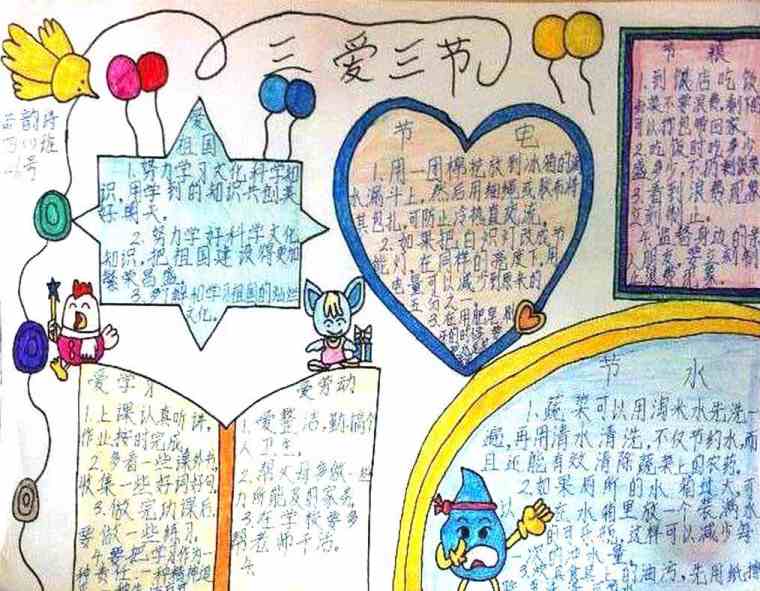 三爱三节
韵诗
班
号
爱
祖国
1.努力学习文化科学知
识,用学到的知识共创美
好明天。
2.努力学好科学文化
知识,把祖国建设得更加
繁荣昌盛。
3.多了解和学习祖国的灿烂
文化。
节 电
1.用一团棉花放到冰箱的漏
水漏斗上,然后用细绳或胶布将
其包扎,可防止冷热直交流。
2.如果把白炽灯改成节
能灯,在同样的亮度下,用
电量可以减少到原来的
五分之一。
3.在用肥皂
节 粮
1.到饭店吃饭
可以打包带回家
2.吃饭时吃多少
盛多少,不剩饭菜
3.看到浪费现象
立刻制止。
4.监督身边的亲
人朋友,
浪费
爱学习
1.上课认真听讲,
作业按时完成。
2.多看一些课外书,
收集一些好词好句。
3.做完功课后,
要做一些练习。
4.要把学习作为一
种责任,一种精神追
爱劳动
1.爱整洁,勤搞个
人卫生。
2.帮父母多做一些
力所能及的家务。
3.在学校要多
帮老师干活。
节 水
1.蔬菜可以用淘米水先洗一
遍,再用清水清洗,不仅节约水,而
且还能有效清除蔬菜上的农药。
2.如果厕所的水箱过大,可
以在水箱里放一个装满水
的可乐瓶,这样可以减少每
一次的出水量。
3.炊具食具上的油污,先用纸擦